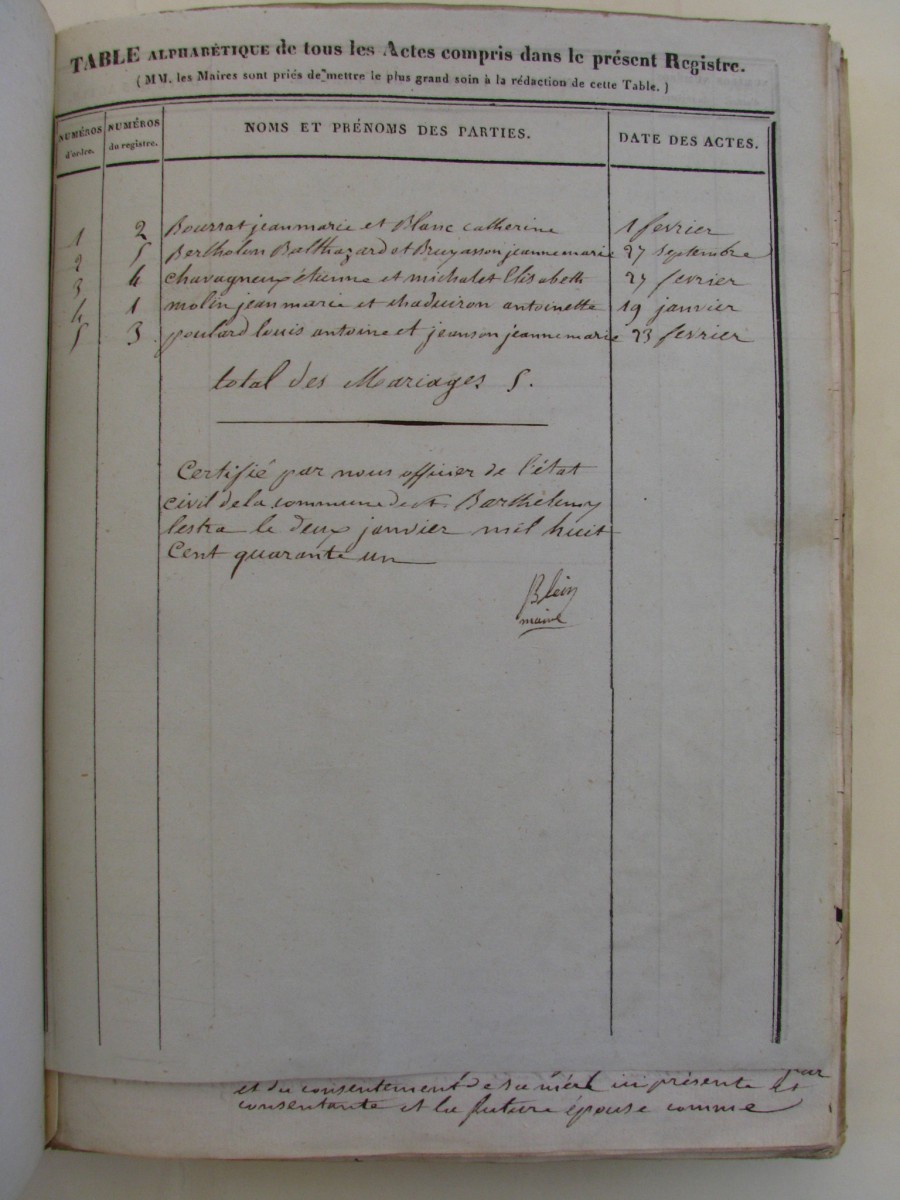 TABLE ALPHABÉTIQUE de tous les Actes compris dans le présent Registre.
( MM. les Maires sont priés de mettre le plus grand soin à la rédaction de cette Table. )
NUMÉROS d'ordre. NUMÉROS du registre. NOMS ET PRÉNOMS DES PARTIES. DATE DES ACTES.
1 2 Bourrat jean marie et Blanc catherine 1 fevrier
2 5 Bertholon Balthazard et Bruyasson jeanne marie 27 septembre
3 4 chavagneux étienne et michalet Elisabeth 27 fevrier
4 1 molin jean marie et chaduiron antoinette 19 janvier
5 3 poulard louis antoine et jeanson jeanne marie 23 fevrier
total des Mariages 5.
Certifié par nous officier de l'état
civil de la commune de St Barthelemy
lestra le deux janvier mil huit
Cent quarante un
Blein
maire
et du consentement de sa mère ici présente et
consentante et la future épouse comme